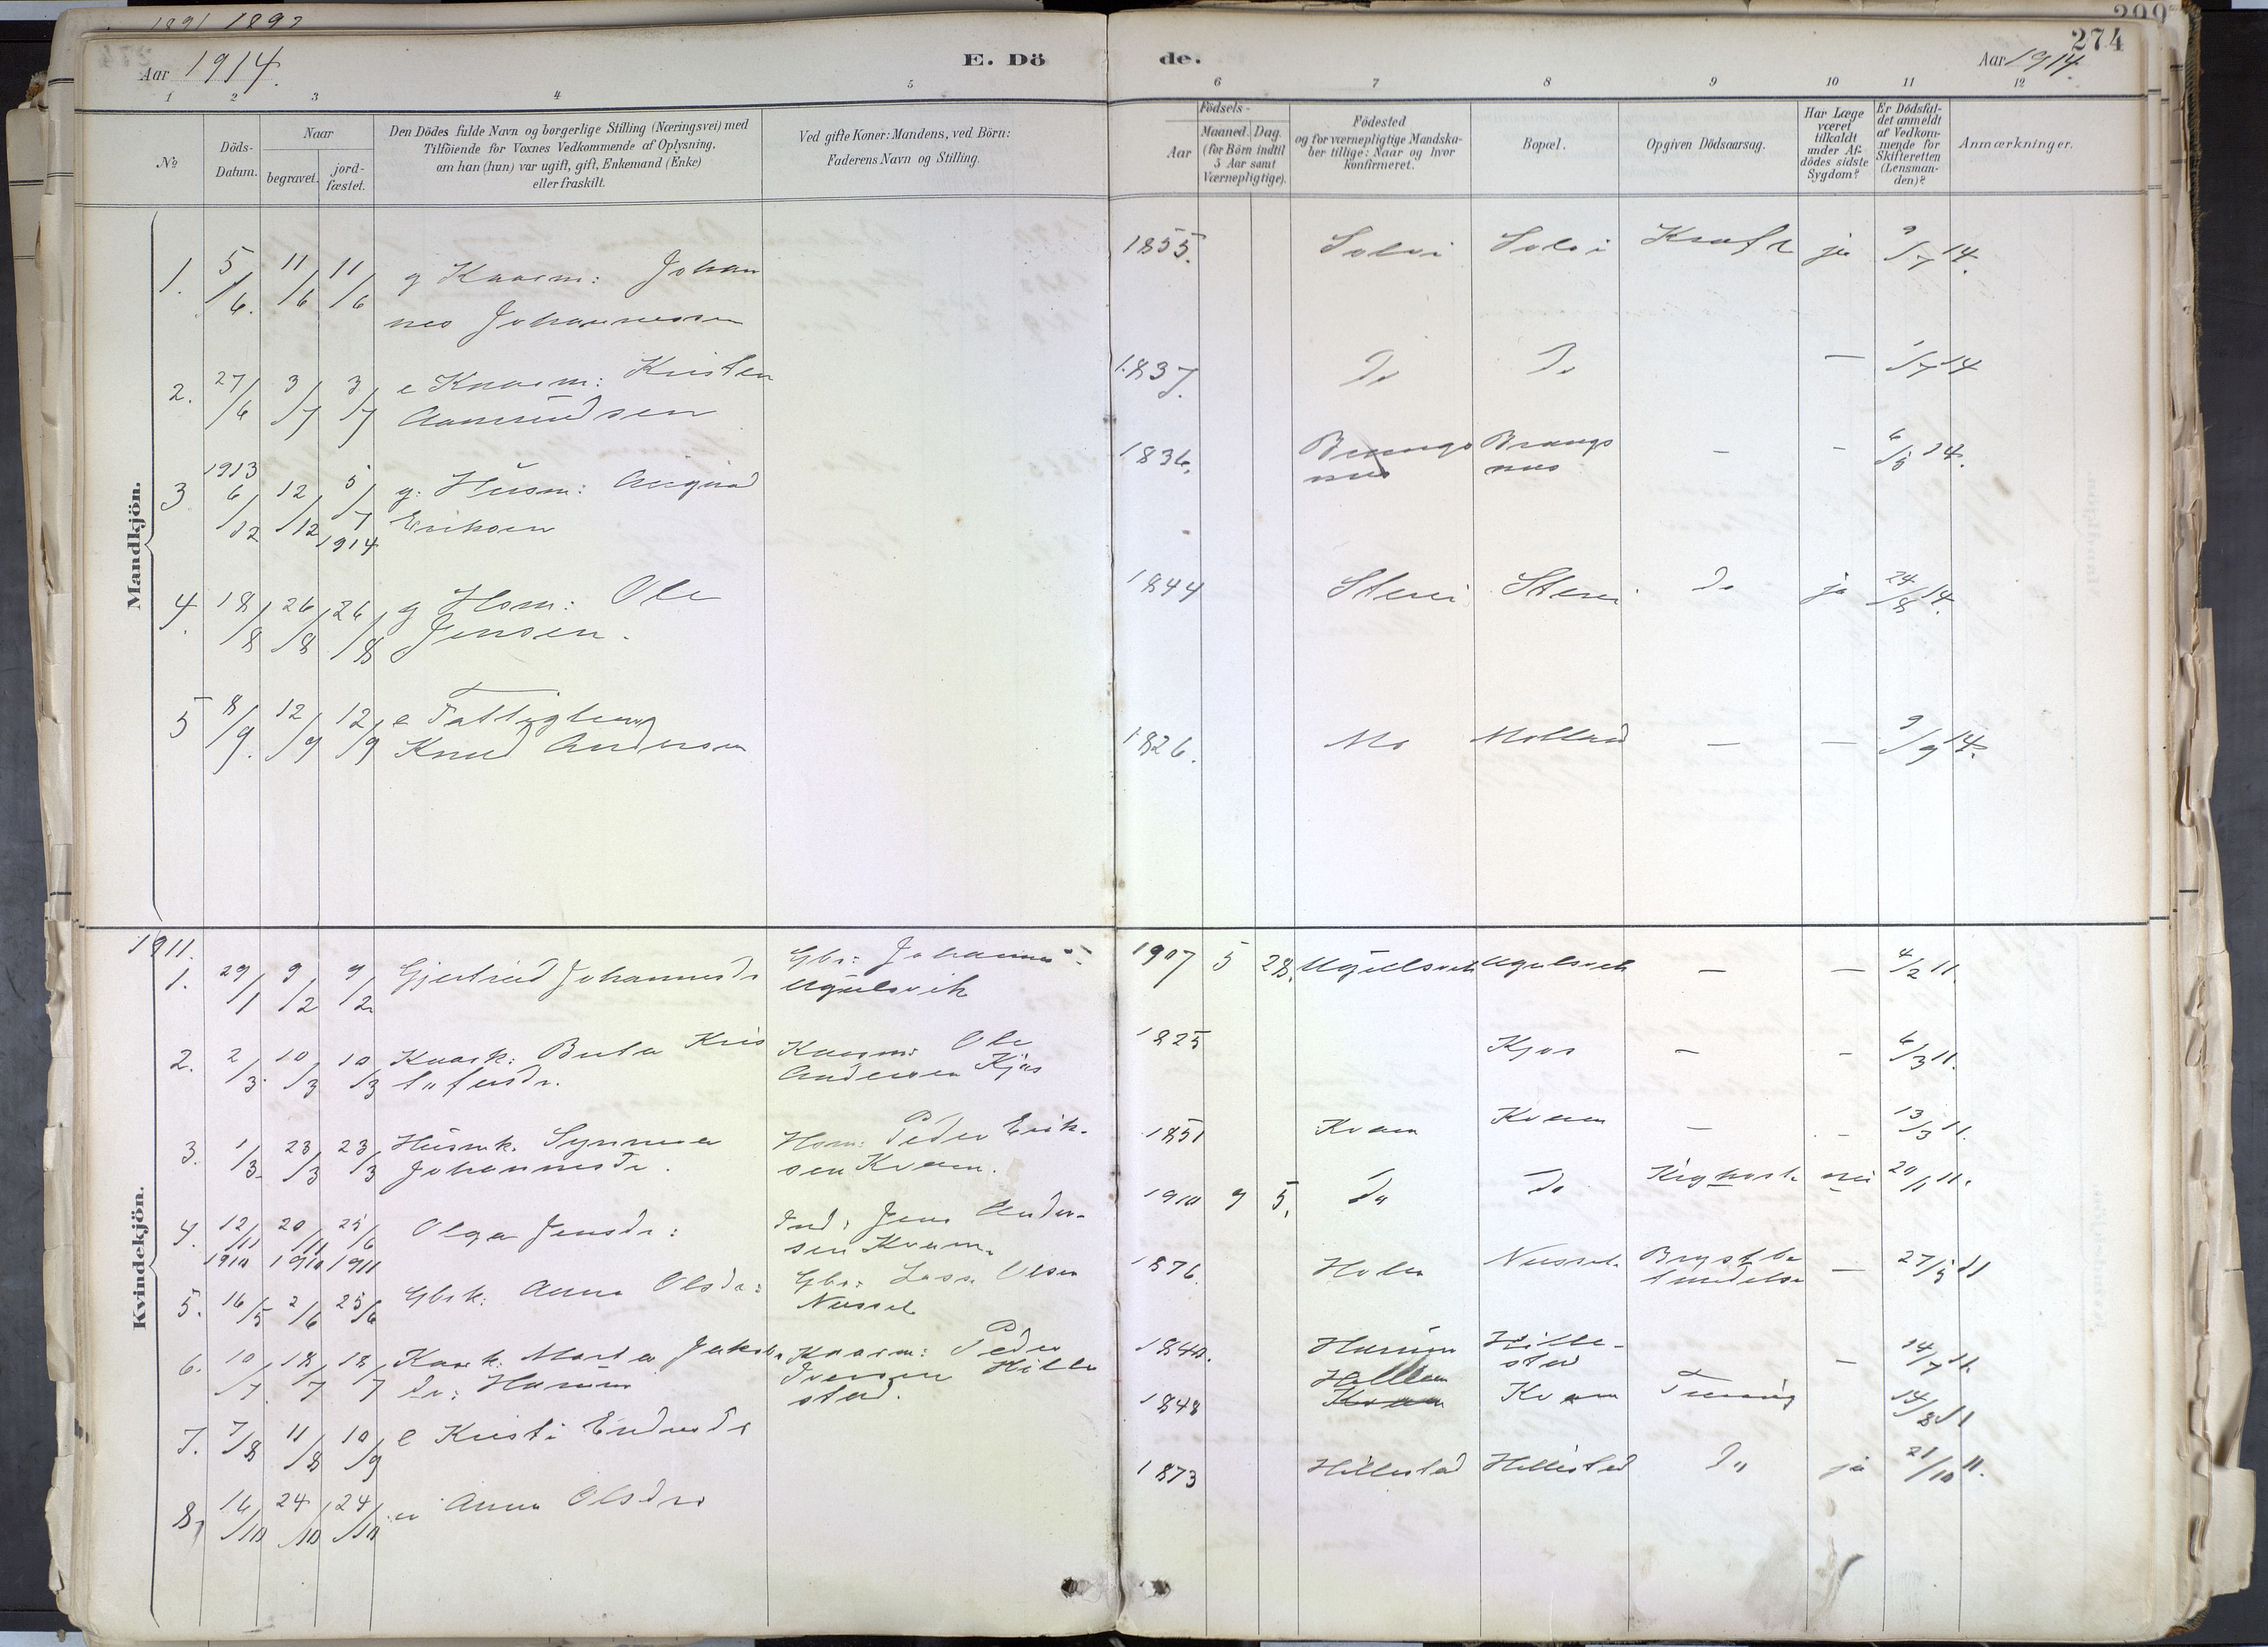 1891 1892
299
274
Aar 1914.
E. Dö
de.
Aar 1914.
1 2 3 4 5 6 7 8 9 10 11 12
No
Döds-
Datum.
Naar
begravet.
jord-
fæstet.
Den Dödes fulde Navn og borgerlige Stilling (Næringsvei) med
Tilföiende for Voxnes Vedkommende af Oplysning,
om han (hun) var ugift, gift, Enkemand (Enke)
eller fraskilt.
Ved gifte Koner: Mandens, ved Börn:
Faderens Navn og Stilling.
Födsels-
Aar
Maaned. Dag.
(for Börn indtil
5 Aar samt
Værnepligtige).
Födested
og for værnepligtige Mandska-
ber tillige: Naar og hvor
konfirmeret.
Bopæl.
Opgiven Dödsaarsag.
Har Læge
været
tilkaldt
under Af-
dödes sidste
Sygdom?
Er Dödsfal-
det anmeldt
af Vedkom-
mende for
Skifteretten
(Lensman-
den)?
Anmærkninger.
Mandkjön.
1. 5/6. 11/6 11/6 g Kaarm: Johan
nes Johannessen
1855. Solvi Solvi Kræft ja 9/7 14.
2. 27/6 3/7 3/7 e Kaarm: Kristen
Aamundsen
1837. Do Do — 1/7 14
3 1913 6/12 12/12 5/7 1914 g: Husm:
Eriksen
1836. — - 6/5 14.
4. 18/8 26/8 26/8 g Hsm: Ole
Jensen.
1844 do ja 24/8 14.
5 8/9. 12/9 12/9 e
Knud Andersen
1826. Mo — — 9/9 14.
Kvindekjön.
1911.
1. 29/1 9/2 9/2 Gjertrud Johannesdr Gbr: Johannes
Ugulsvik
1907 5 28. Ugulsvik Ugulsvik — — 4/2 11.
2. 2/3. 10/3 10/3 Kaark: Berta Kris
tofersdr. Kaarm: Ole
Andersen Kjøs
1825 Kjøs — - 6/3 11.
3. 1/3. 23/3 23/3 Husmk. Synneva
Johannesdr. Hsm: Peder Erik-
sen Kvam.
1851 Kvam Kvam — - 13/3 11.
4. 12/11 1910 20/11 1910 25/6 1911 Olga Jensdr: Ind: Jens Ander-
sen Kvam.
1910 9 5. Do Do Kighoste nei 20/1 11.
5. 16/5 2/6 25/6 Gbrk: Anna Olsdr: Gbr: Lasse Olsen
1876. Holen Brystbe
tændelse — 27/5 11
6. 10/7. 18/7 18/7 Kaark. Marta Jakobs
dr: Kaarm: Peder
Iversen Hille
stad.
1840. Hille-
stad — 14/7 11.
7. 7/8 11/8 10/9 e Kristi Endresdr
1848 Kvam Kvam Tæring 14/8 11
8. 16/10 24/10 24/10 u Anna Olsdr
1873 Hillestad Hillestad Do ja 21/10 11.